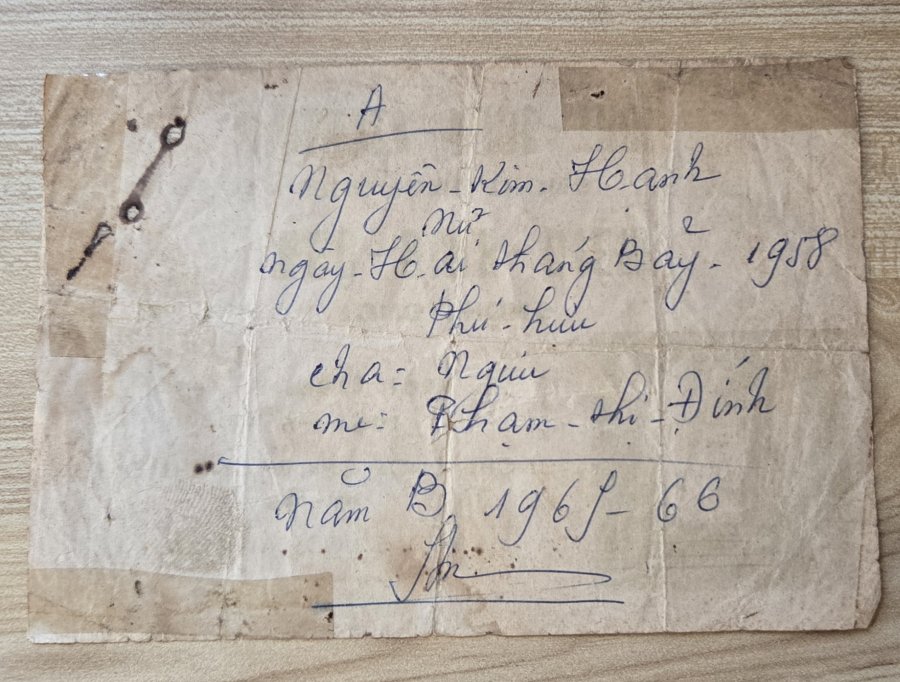 A
Nguyễn-Kim. Hanh
Nữ
ngày-Hai tháng Bảy-1958
Phú-hữu
cha: Ngưu
mẹ: Phạm-thị-Đính
năm B, 1965-66